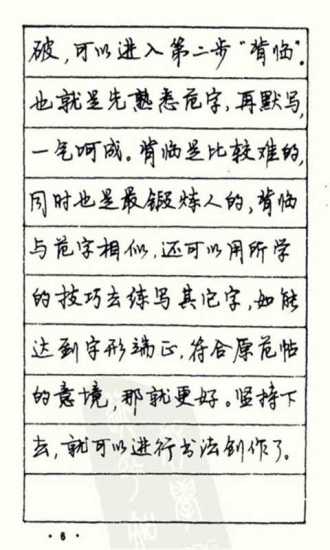 破，可以进入第二步“背临”。
也就是先熟悉范字，再默写，
一气呵成。背临是比较难的，
同时也是最锻炼人的，背临
与范字相似，还可以用所学
的技巧去练写其它字，如能
达到字形端正，符合原范帖
的意境，那就更好。坚持下
去，就可以进行书法创作了。
·6·